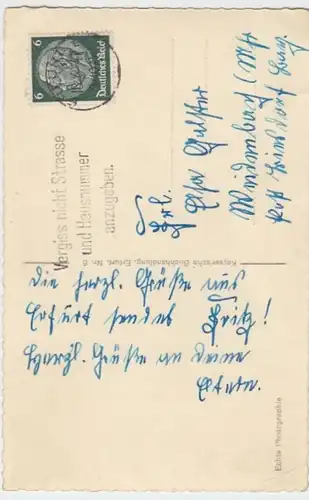 6 6
Deutsches Reich
Vergiss nicht Strasse
und Hausnummer
anzugeben.
Frl.
Elsa
Post
Keyser'sche Buchhandlung, Erfurt, Nr. 6
Die herzl. Grüße aus
Erfurt sendet Fritz!
Herzl. Grüße an Deine
Eltern.
Echte Photographie